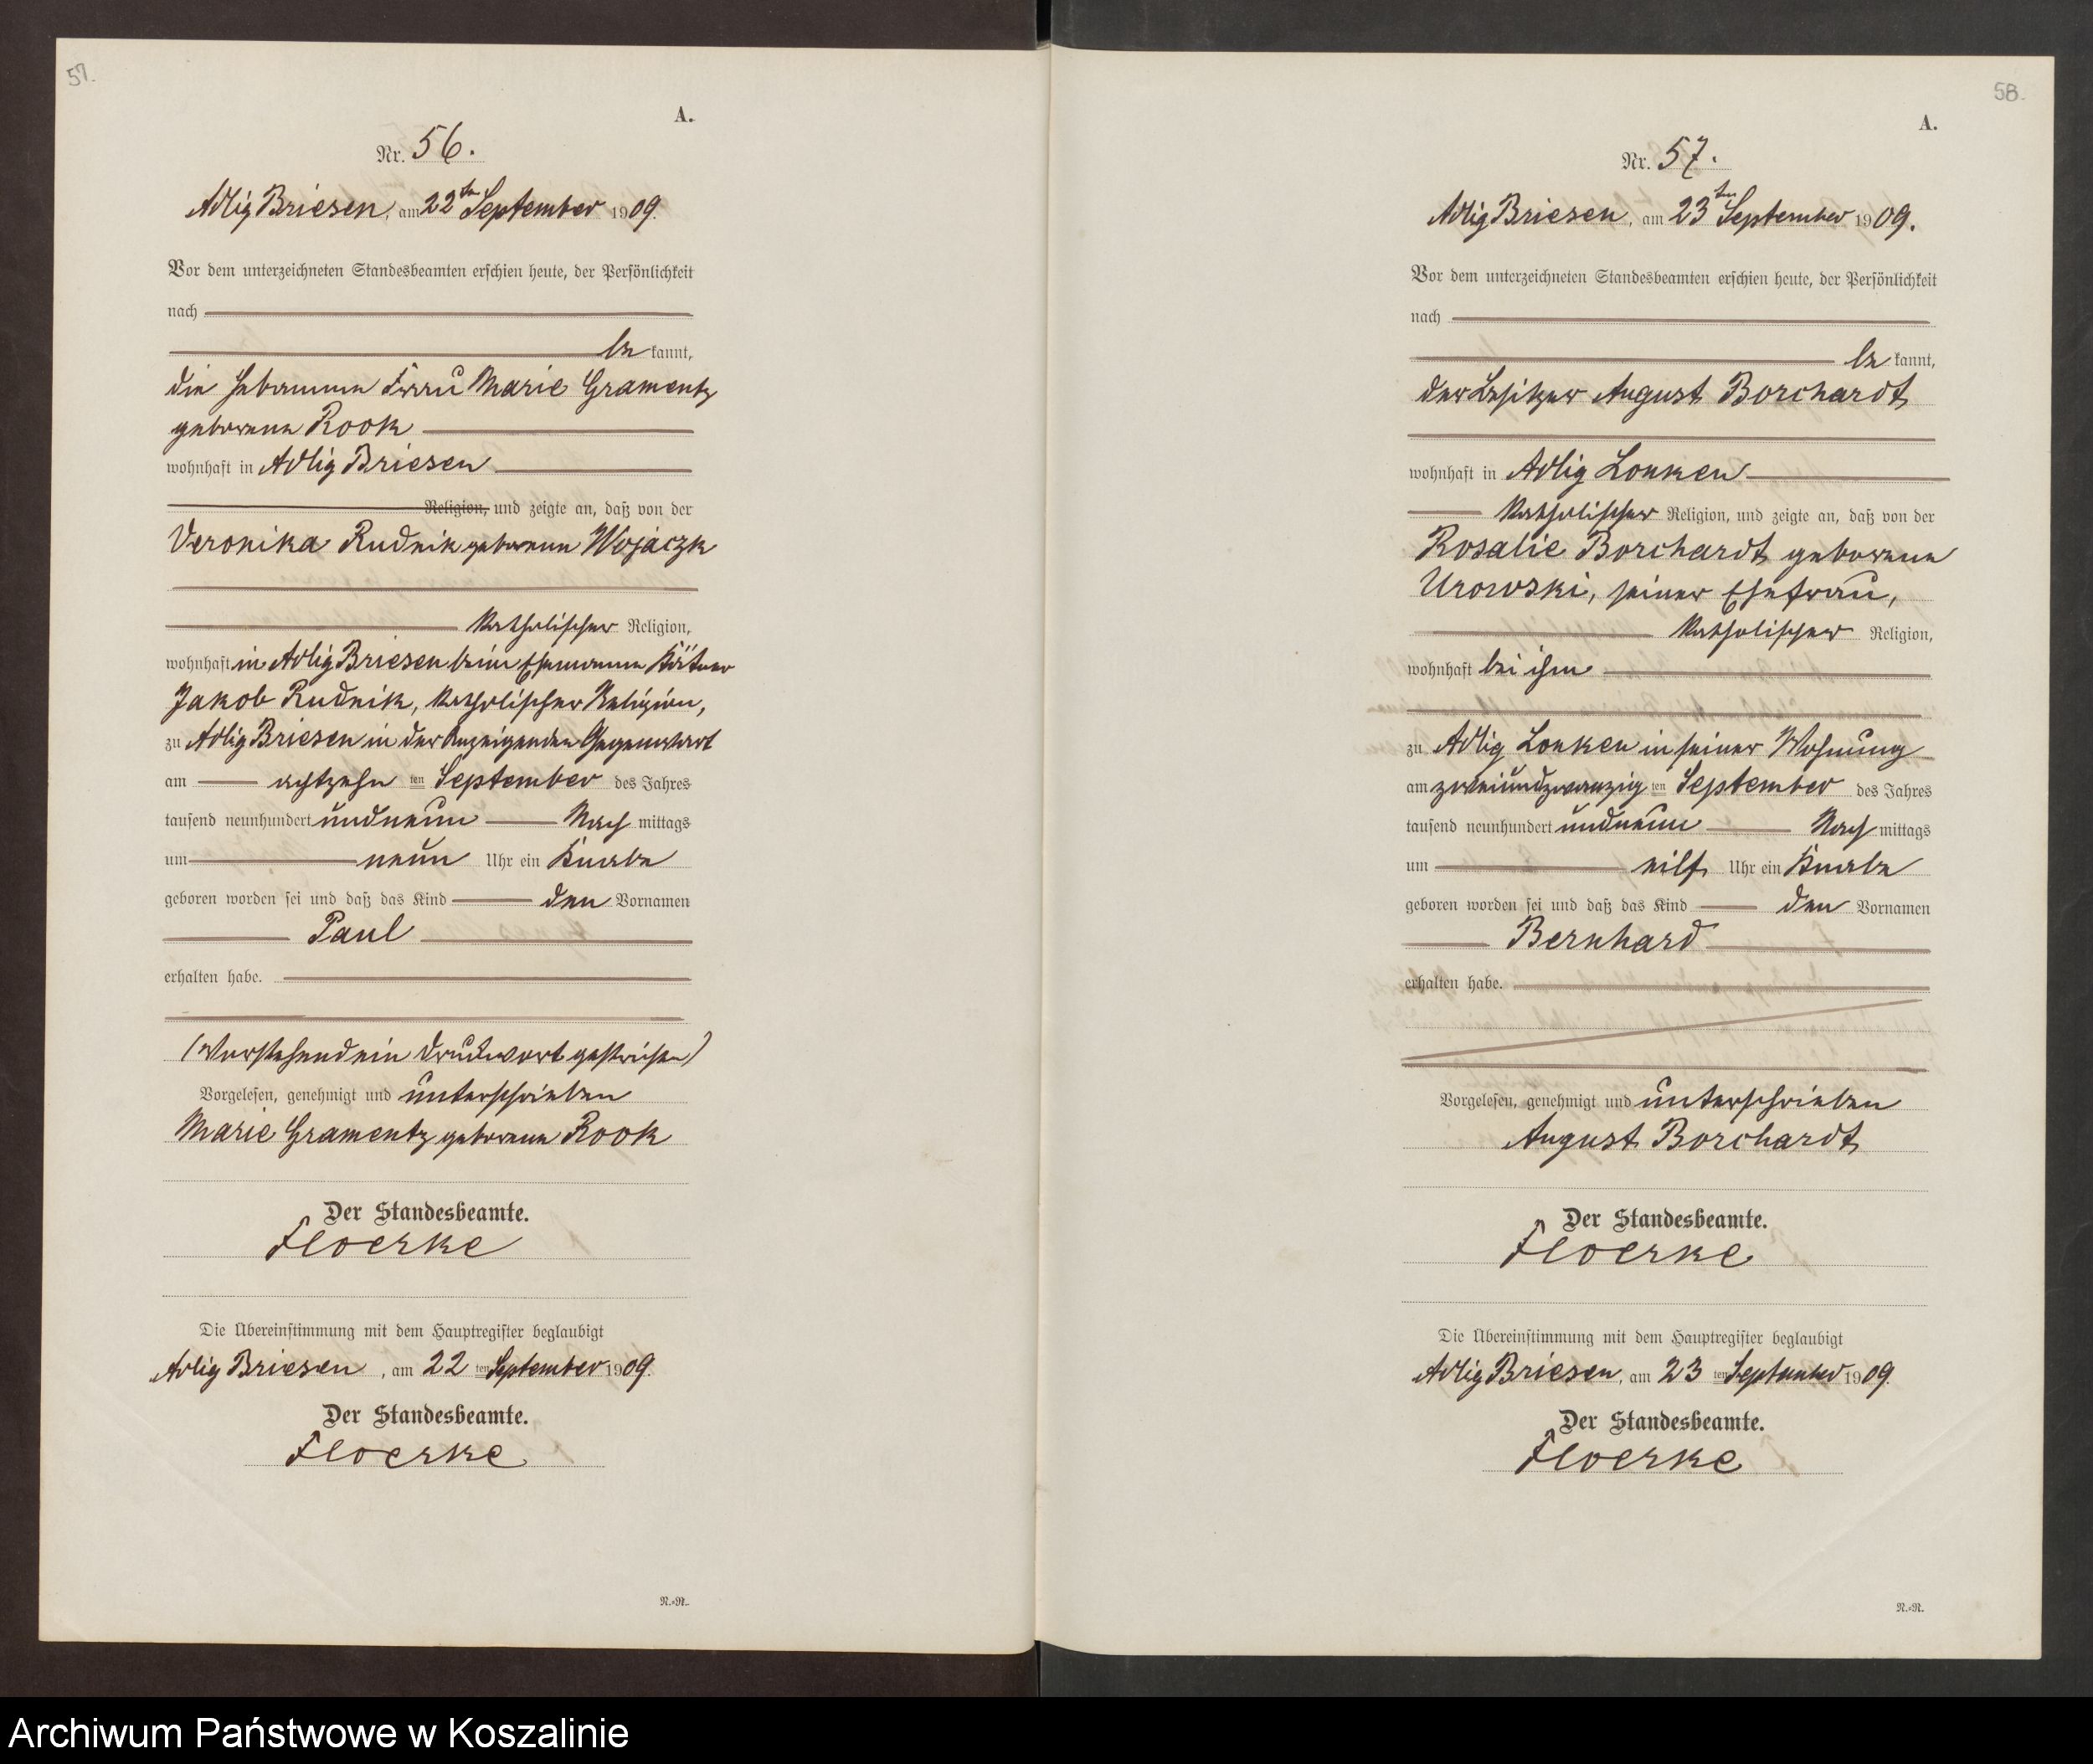 57.
A.
Nr. 56.
Adlig Briesen, am 22ten September 1909.
Vor dem unterzeichneten Standesbeamten erschien heute, der Persönlichkeit
nach
be kannt,
die Hebamme Frau Marie Gramentz
geborene Rook
wohnhaft in Adlig Briesen
Religion, und zeigte an, daß von der
Veronika Rudnik geborenen Wojaczk
katholischer Religion,
wohnhaft in Adlig Briesen beim Ehemanne Kätner
Jakob Rudnik, katholischer Religion,
zu Adlig Briesen in der Anzeigenden Gegenwart
am achtzehn ten September des Jahres
tausend neunhundert und neun Nach mittags
um neun Uhr ein Knabe
geboren worden sei und daß das Kind den Vornamen
Paul
erhalten habe.
(Vorstehend ein Druckwort gestrichen)
Vorgelesen, genehmigt und unterschrieben
Marie Gramentz geborene Rook
Der Standesbeamte.
Floerke
Die Übereinstimmung mit dem Hauptregister beglaubigt
Adlig Briesen, am 22 ten September 1909.
Der Standesbeamte.
Floerke
N.=N.
58.
A.
Nr. 57.
Adlig Briesen, am 23ten September 1909.
Vor dem unterzeichneten Standesbeamten erschien heute, der Persönlichkeit
nach
be kannt,
der Besitzer August Borchardt
wohnhaft in Adlig Lonken
katholischer Religion, und zeigte an, daß von der
Rosalie Borchardt geborene
Urowski, seiner Ehefrau,
katholischer Religion,
wohnhaft bei ihm
zu Adlig Lonken in seiner Wohnung
am zweiundzwanzig ten September des Jahres
tausend neunhundert und neun Nach mittags
um eilf Uhr ein Knabe
geboren worden sei und daß das Kind den Vornamen
Bernhard
erhalten habe.
Vorgelesen, genehmigt und unterschrieben
August Borchardt
Der Standesbeamte.
Floerke
Die Übereinstimmung mit dem Hauptregister beglaubigt
Adlig Briesen, am 23 ten September 1909.
Der Standesbeamte.
Floerke
N.=N.
Archiwum Państwowe w Koszalinie